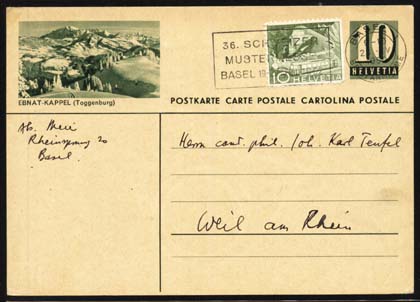 36. SCH
MUSTE
BASEL 19
10 HELVETIA
10
HELVETIA
EBNAT-KAPPEL (Toggenburg)
POSTKARTE CARTE POSTALE CARTOLINA POSTALE
Abs. Meier
Rheinsprung 20
Basel
Herrn cand. phil. Joh. Karl Teufel
Weil am Rhein